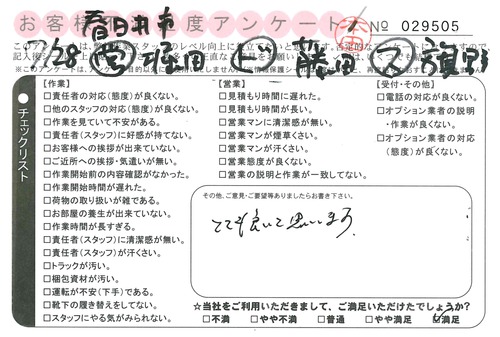 お客様満足度アンケート
№ 029505
春日井市
7/28 堀田 藤田 ス 濱野
【作業】
□責任者の対応(態度)が良くない。
□他のスタッフの対応(態度)が良くない。
□作業を見ていて不安がある。
□責任者(スタッフ)に好感が持てない。
□お客様への挨拶が出来ていない。
□ご近所への挨拶・気遣いが無い。
□作業開始前の内容確認がなかった。
□作業開始時間が遅れた。
□荷物の取り扱いが雑である。
□お部屋の養生が出来ていない。
□作業時間が長すぎる。
□責任者(スタッフ)に清潔感が無い。
□責任者(スタッフ)が汗くさい。
□トラックが汚い。
□梱包資材が汚い。
□運転が不安(下手)である。
□靴下の履き替えをしてない。
□スタッフにやる気がみられない。
【営業】
□見積もり時間に遅れた。
□見積もり時間が長い。
□営業マンに清潔感が無い。
□営業マンが煙草くさい。
□営業マンが汗くさい。
□営業態度が良くない。
□営業の説明と作業が一致してない。
【受付・その他】
□電話の対応が良くない。
□オプション業者の説明
・作業が良くない。
□オプション業者の対応
(態度)が良くない。
チェックリスト
その他、ご意見・ご要望等ありましたらお書き下さい。
とても良いと思います。
☆当社をご利用いただきまして、ご満足いただけたでしょうか?
□不満 □やや不満 □普通 □やや満足 ☑満足